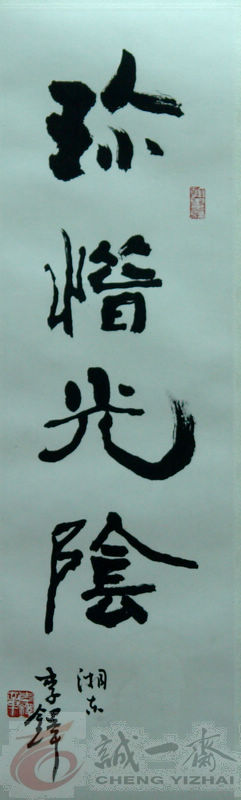 珎惜光陰
湘东
李鐸
誠一齋
CHENG YIZHAI